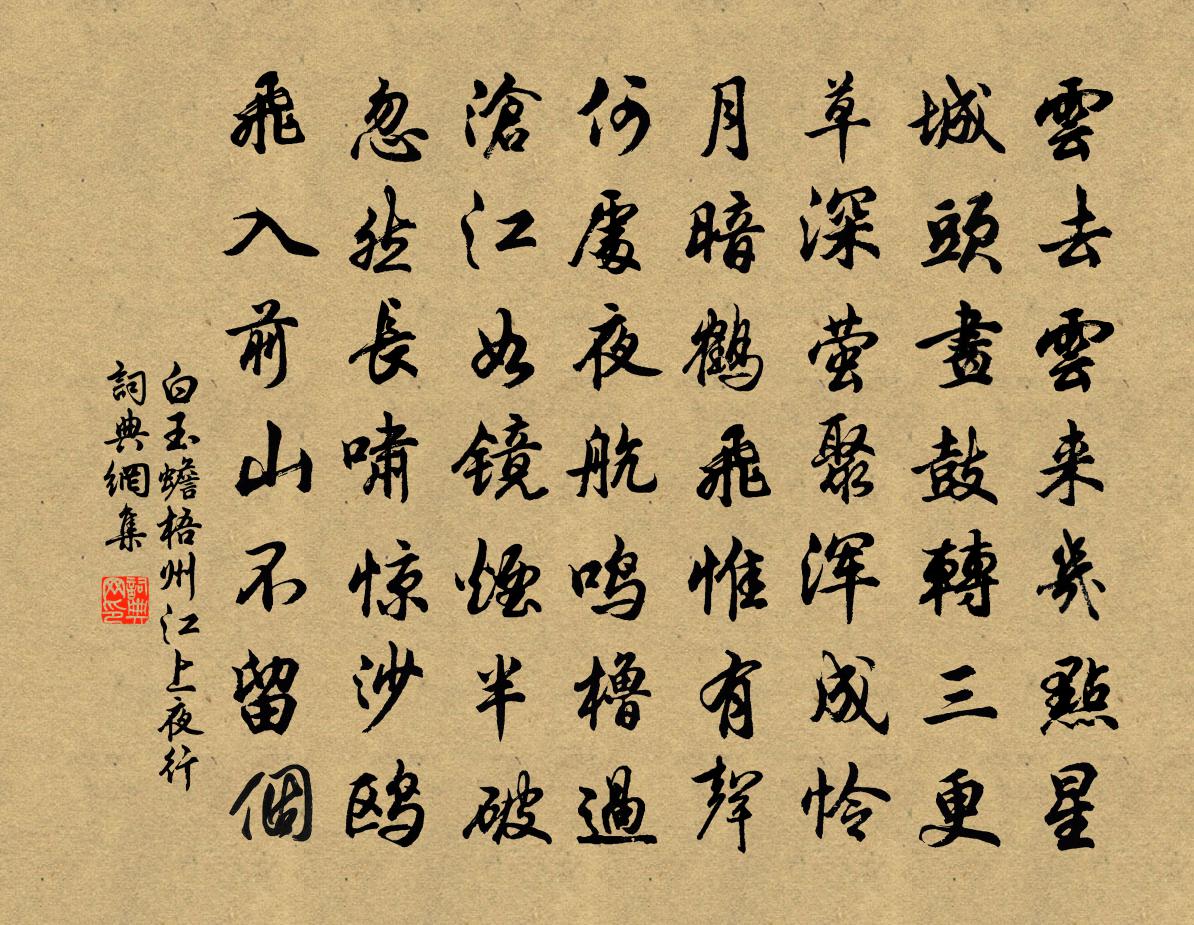 雲去雲来幾點星
城頭畫鼓轉三更
草深萤聚浑成怜
月暗鶴飛惟有聲
何處夜航鸣櫓過
滄江如镜煙半破
忽然長嘯惊沙鸥
飛入前山不留個
白玉蟾梧州江上夜行
詞典網集
詞典网印